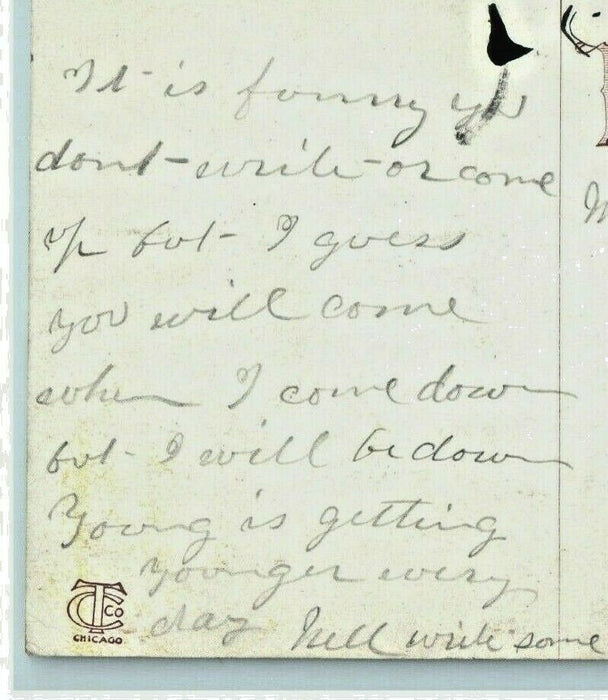 It is funny you
dont write or come
up but I guess
you will come
when I come down
but I will be down
Young is getting
younger every
day Nell write some
TC CO
CHICAGO